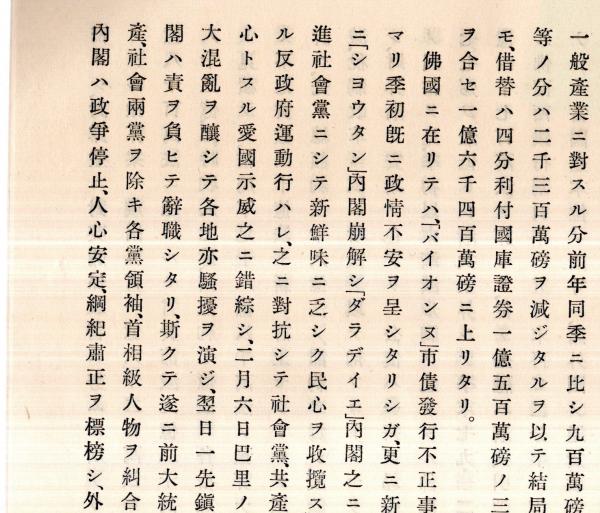 一般産業ニ對スル分前年同季ニ比シ九百萬磅
等ノ分ハ二千三百萬磅ヲ減ジタルヲ以テ結局
モ、借替ハ四分利付國庫證券一億五百萬磅ノ三
ヲ合セ一億六千四百萬磅ニ上リタリ。
佛國ニ在リテハ、「バイオンヌ」市債發行不正事
マリ季初既ニ政情不安ヲ呈シタリシガ、更ニ新
ニ「シヨウタン」內閣崩解シ、「ダラデイエ」內閣之ニ
進社會黨ニシテ新鮮味ニ乏シク民心ヲ收攬ス
ル反政府運動行ハレ、之ニ對抗シテ社會黨、共產
心トスル愛國示威之ニ錯綜シ、二月六日巴里ノ
大混亂ヲ釀シテ各地亦騷擾ヲ演ジ、翌日一先鎭
閣ハ責ヲ負ヒテ辭職シタリ、斯クテ遂ニ前大統
產、社會兩黨ヲ除キ各黨領袖、首相級人物ヲ糾合
內閣ハ政爭停止、人心安定、綱紀肅正ヲ標榜シ、外